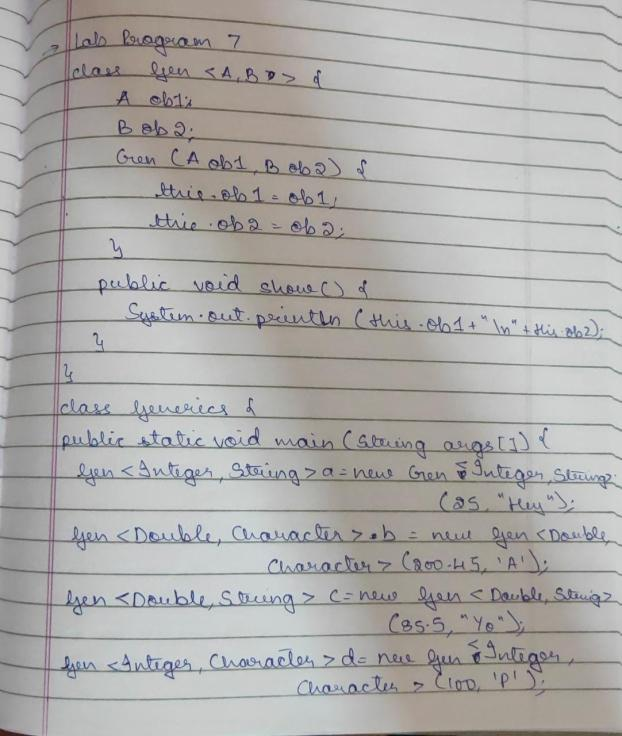 → Lab Program 7
class Gen <A,B> {
A ob1;
B ob2;
Gen (A ob1, B ob2) {
this.ob1 = ob1;
this.ob2 = ob2;
}
public void show() {
System.out.println (this.ob1+"\n"+this.ob2);
}
}
class Generics {
public static void main (String args[]) {
Gen <Integer, String> a = new Gen <Integer, String>
(25, "Hey");
Gen <Double, Character> b = new Gen <Double,
Character> (200.45, 'A');
Gen <Double, String> c = new Gen <Double, String>
(85.5, "Yo");
Gen <Integer, Character> d = new Gen <Integer,
Character> (100, 'P');